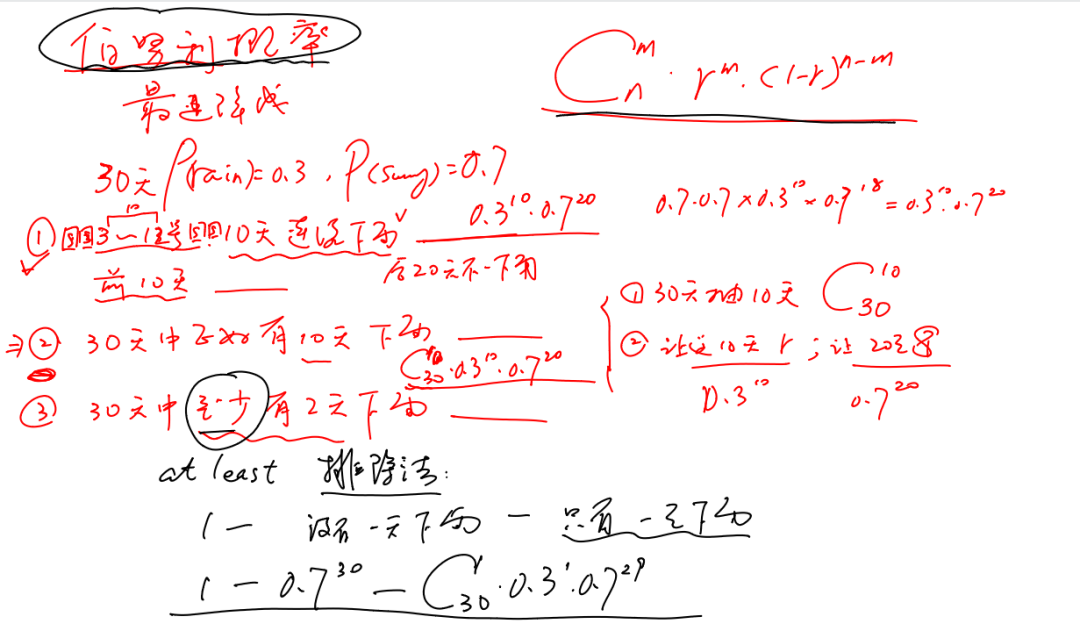 伯努利概率
C_n^m · r^m · (1-r)^{n-m}
30天 P(rain)=0.3 , P(sunny)=0.7
0.7·0.7×0.3^{10}×0.7^{18}=0.3^{10}·0.7^{20}
10
① 3～12号 10天连续下雨 0.3^{10}·0.7^{20}
前10天 后20天不下雨
② 30天中正好有10天下雨 C_{30}^{10}·0.3^{10}·0.7^{20}
① 30天抽10天 C_{30}^{10}
② 让这10天r；让20天
0.3^{10} 0.7^{20}
③ 30天中至少有2天下雨
at least 排除法:
1 - 没有一天下雨 - 只有一天下雨
1 - 0.7^{30} - C_{30}^{1}·0.3^{1}·0.7^{29}